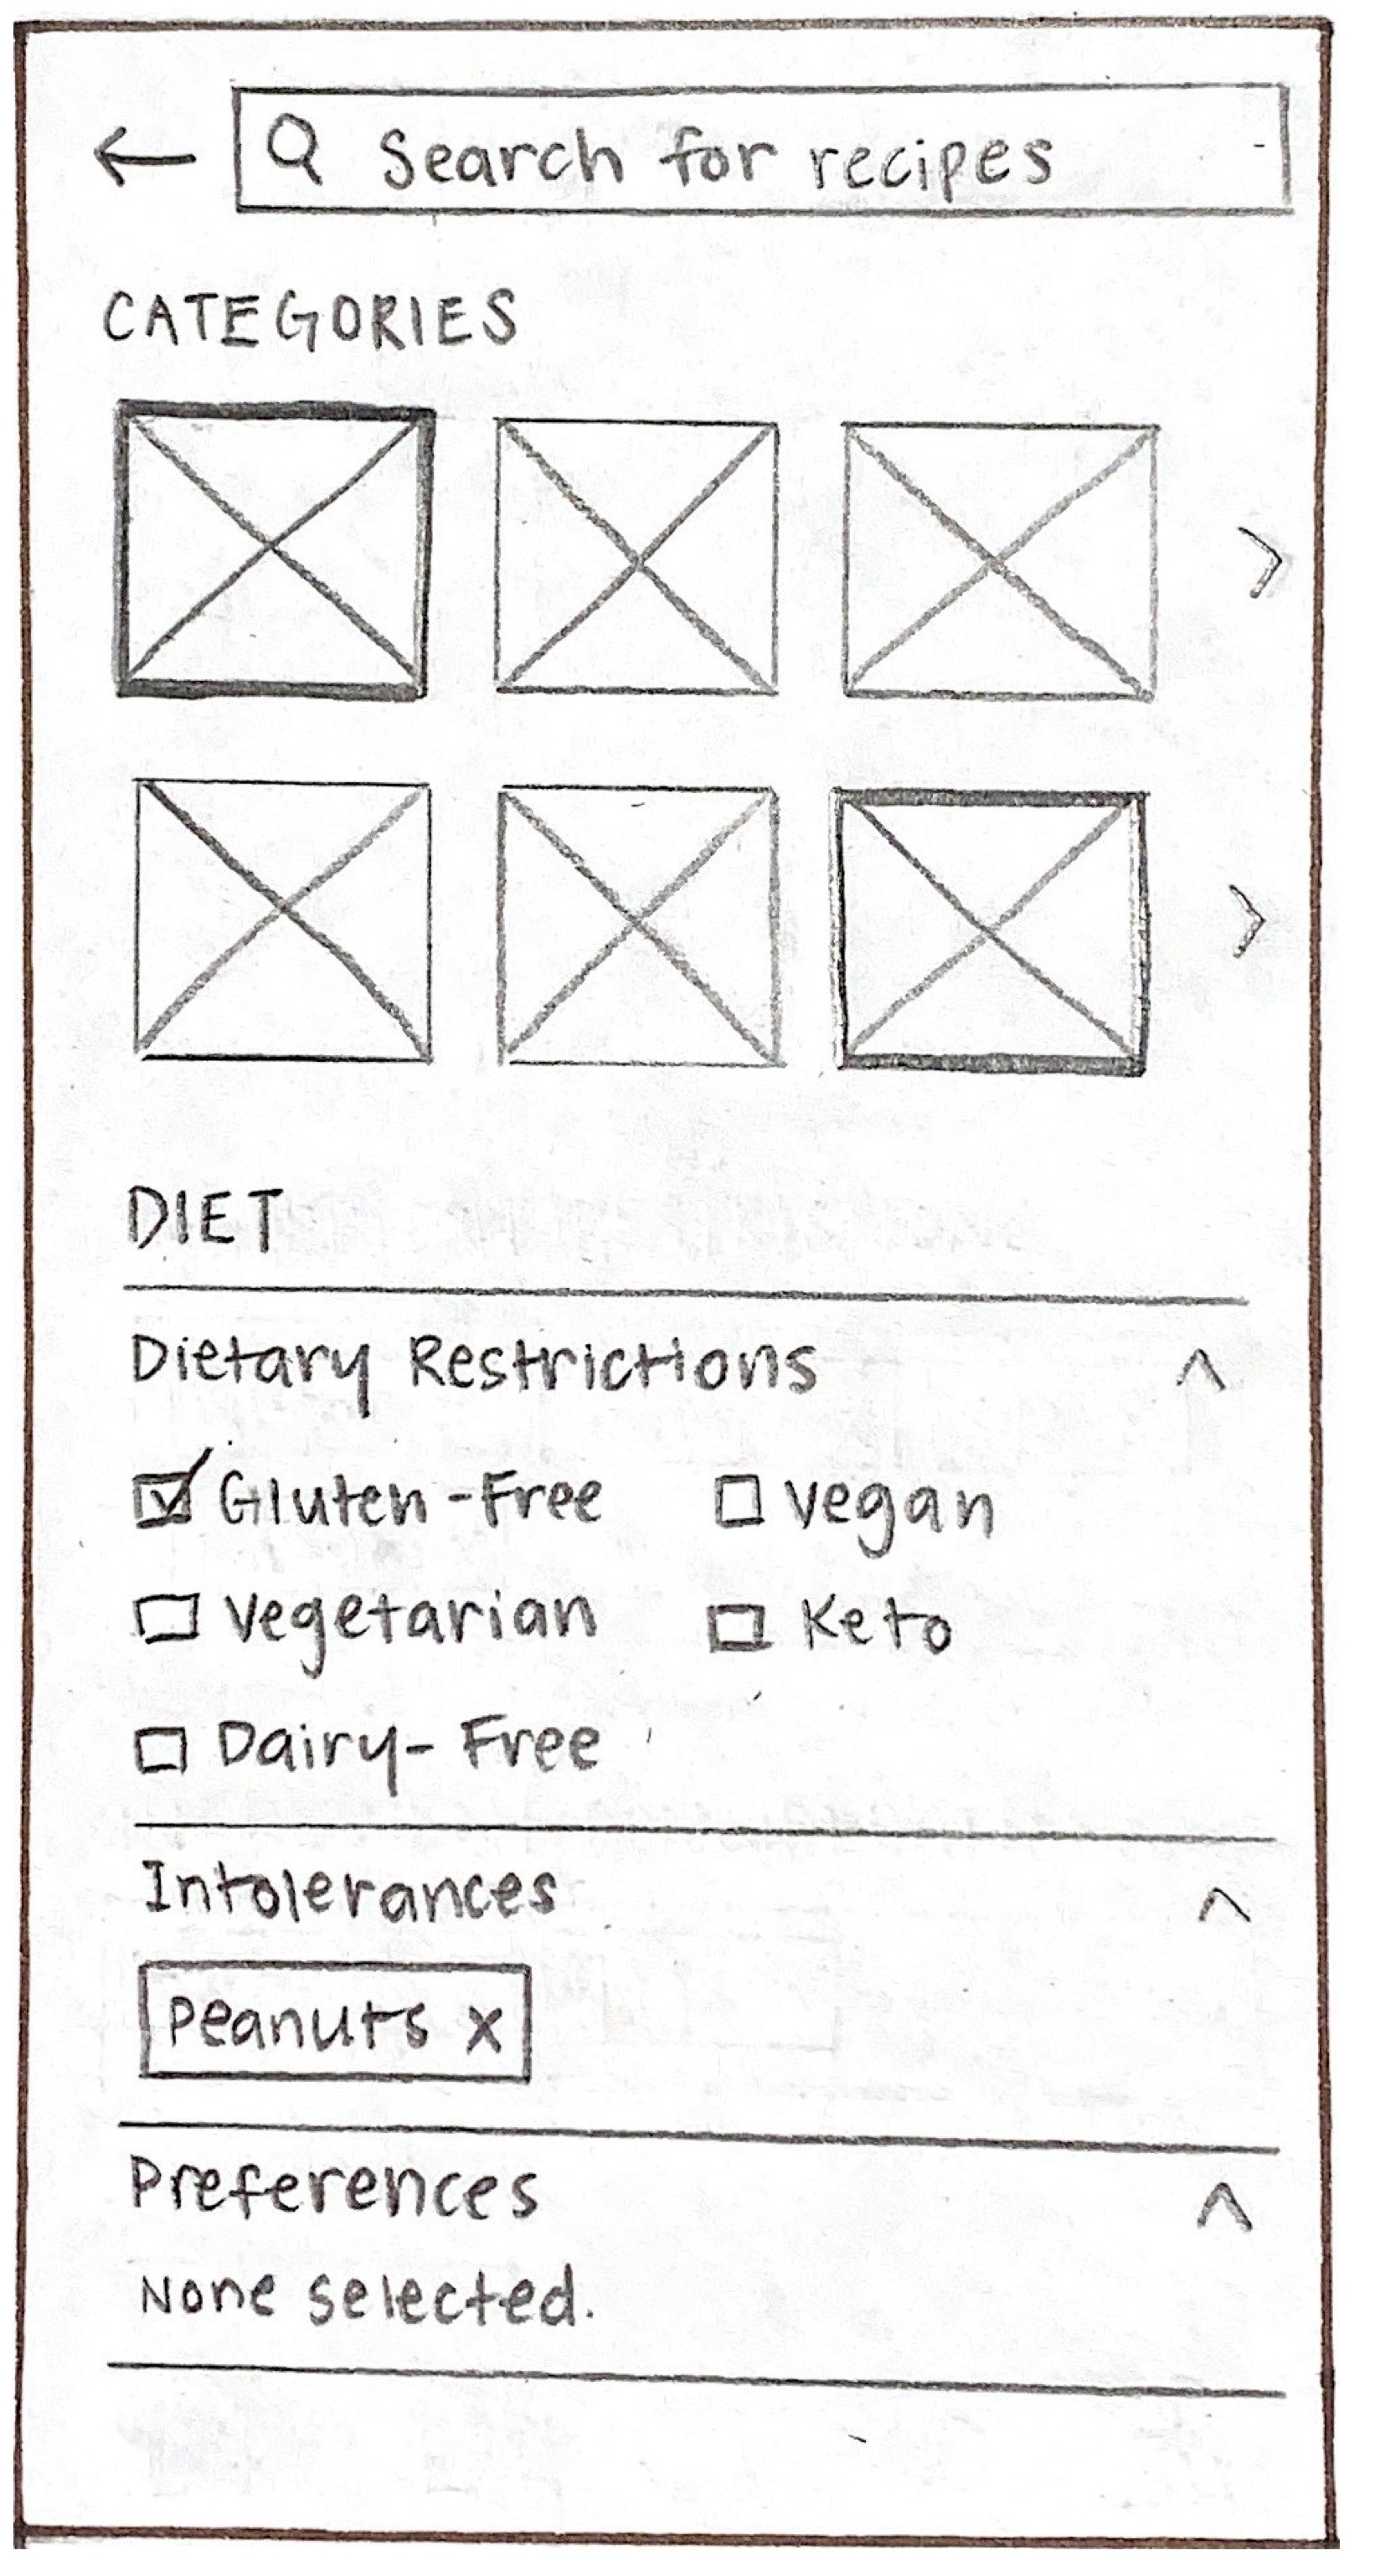 Search for recipes
CATEGORIES
DIET
Dietary Restrictions
Gluten-Free Vegan
Vegetarian Keto
Dairy-Free
Intolerances
Peanuts x
Preferences
None selected.